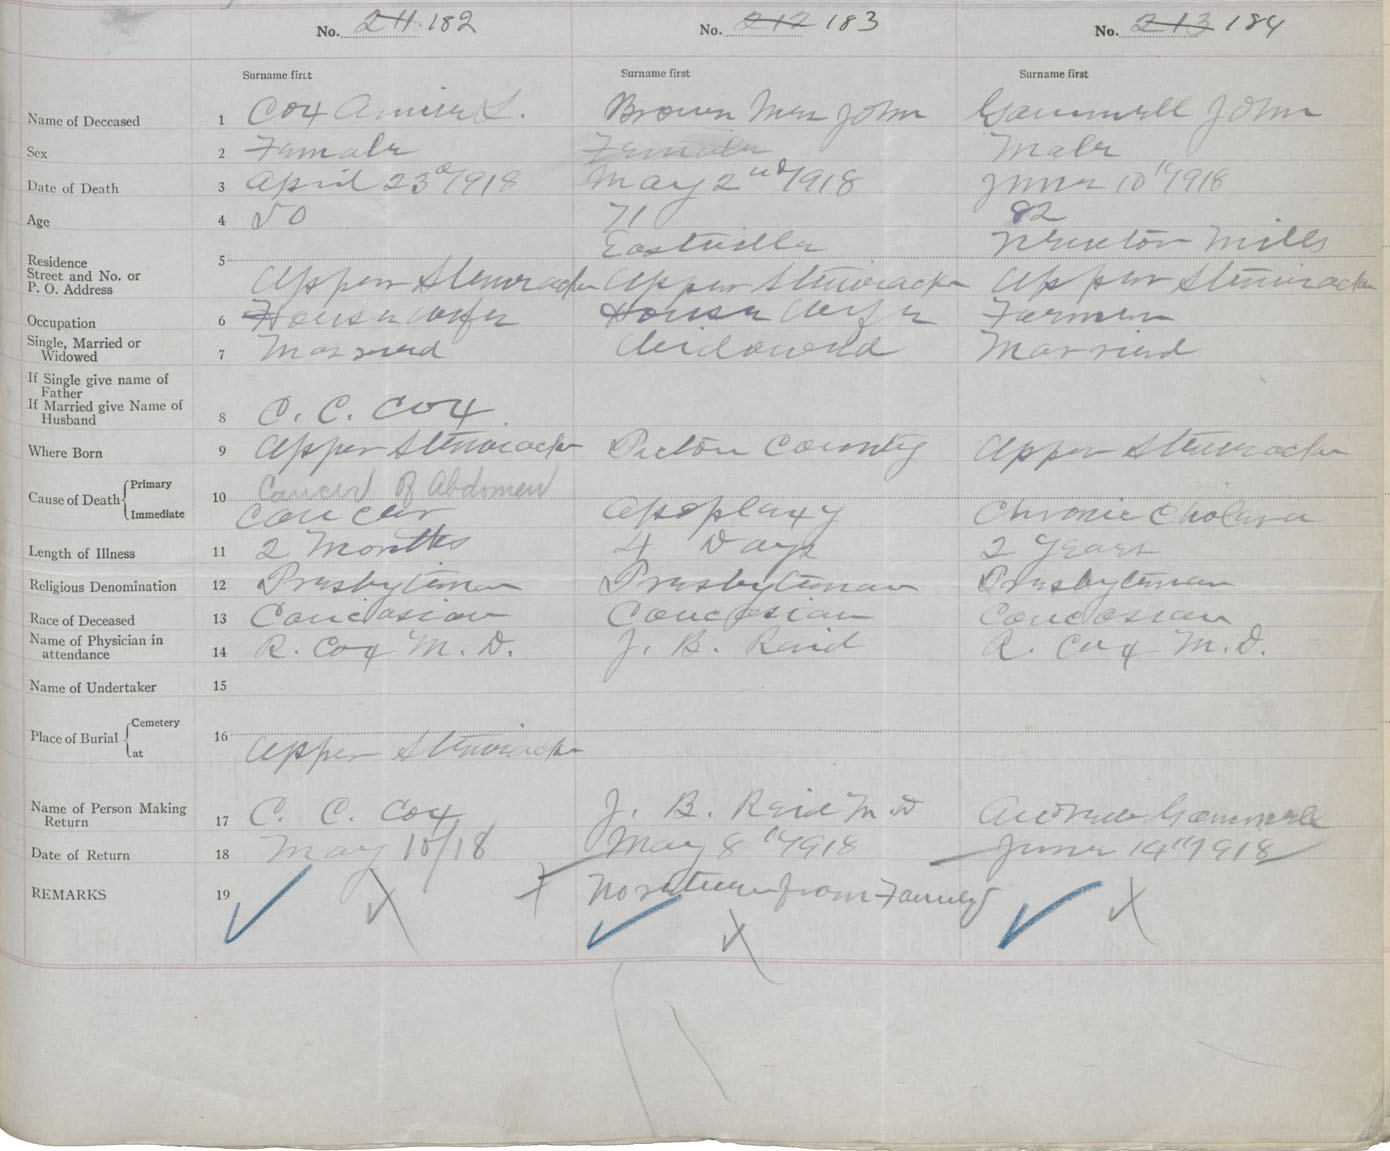 No. 211 182 No. 212 183 No. 213 184
Surname first Surname first Surname first
Name of Deceased 1 Cox Annie L. Brown Mrs John Gammell John
Sex 2 Female Female Male
Date of Death 3 April 23d/1918 May 2nd/1918 June 10th/1918
Age 4 50 71 82
Eastville Newton Mills
Residence 5
Street and No. or
P. O. Address Upper Stewiacke Upper Stewiacke Upper Stewiacke
Occupation 6 House Wife House Wife Farmer
Single, Married or
Widowed 7 Married Widowed Married
If Single give name of
Father
If Married give Name of
Husband 8 C. C. Cox
Where Born 9 Upper Stewiacke Pictou County Upper Stewiacke
Cause of Death Primary 10 Cancer of Abdomen
Immediate Cancer Apoplaxy Chronic Cholera
Length of Illness 11 2 Months 4 Days 2 Years
Religious Denomination 12 Presbyterian Presbyterian Presbyterian
Race of Deceased 13 Caucasian Caucasian Caucasian
Name of Physician in
attendance 14 R. Cox M. D. J. B. Reid R. Cox M. D.
Name of Undertaker 15
Place of Burial Cemetery 16
at Upper Stewiacke
Name of Person Making
Return 17 C. C. Cox J. B. Reid M. D Andrew Gammell
Date of Return 18 May 10/18 May 8th/1918 June 14th/1918
REMARKS 19 No return from Family